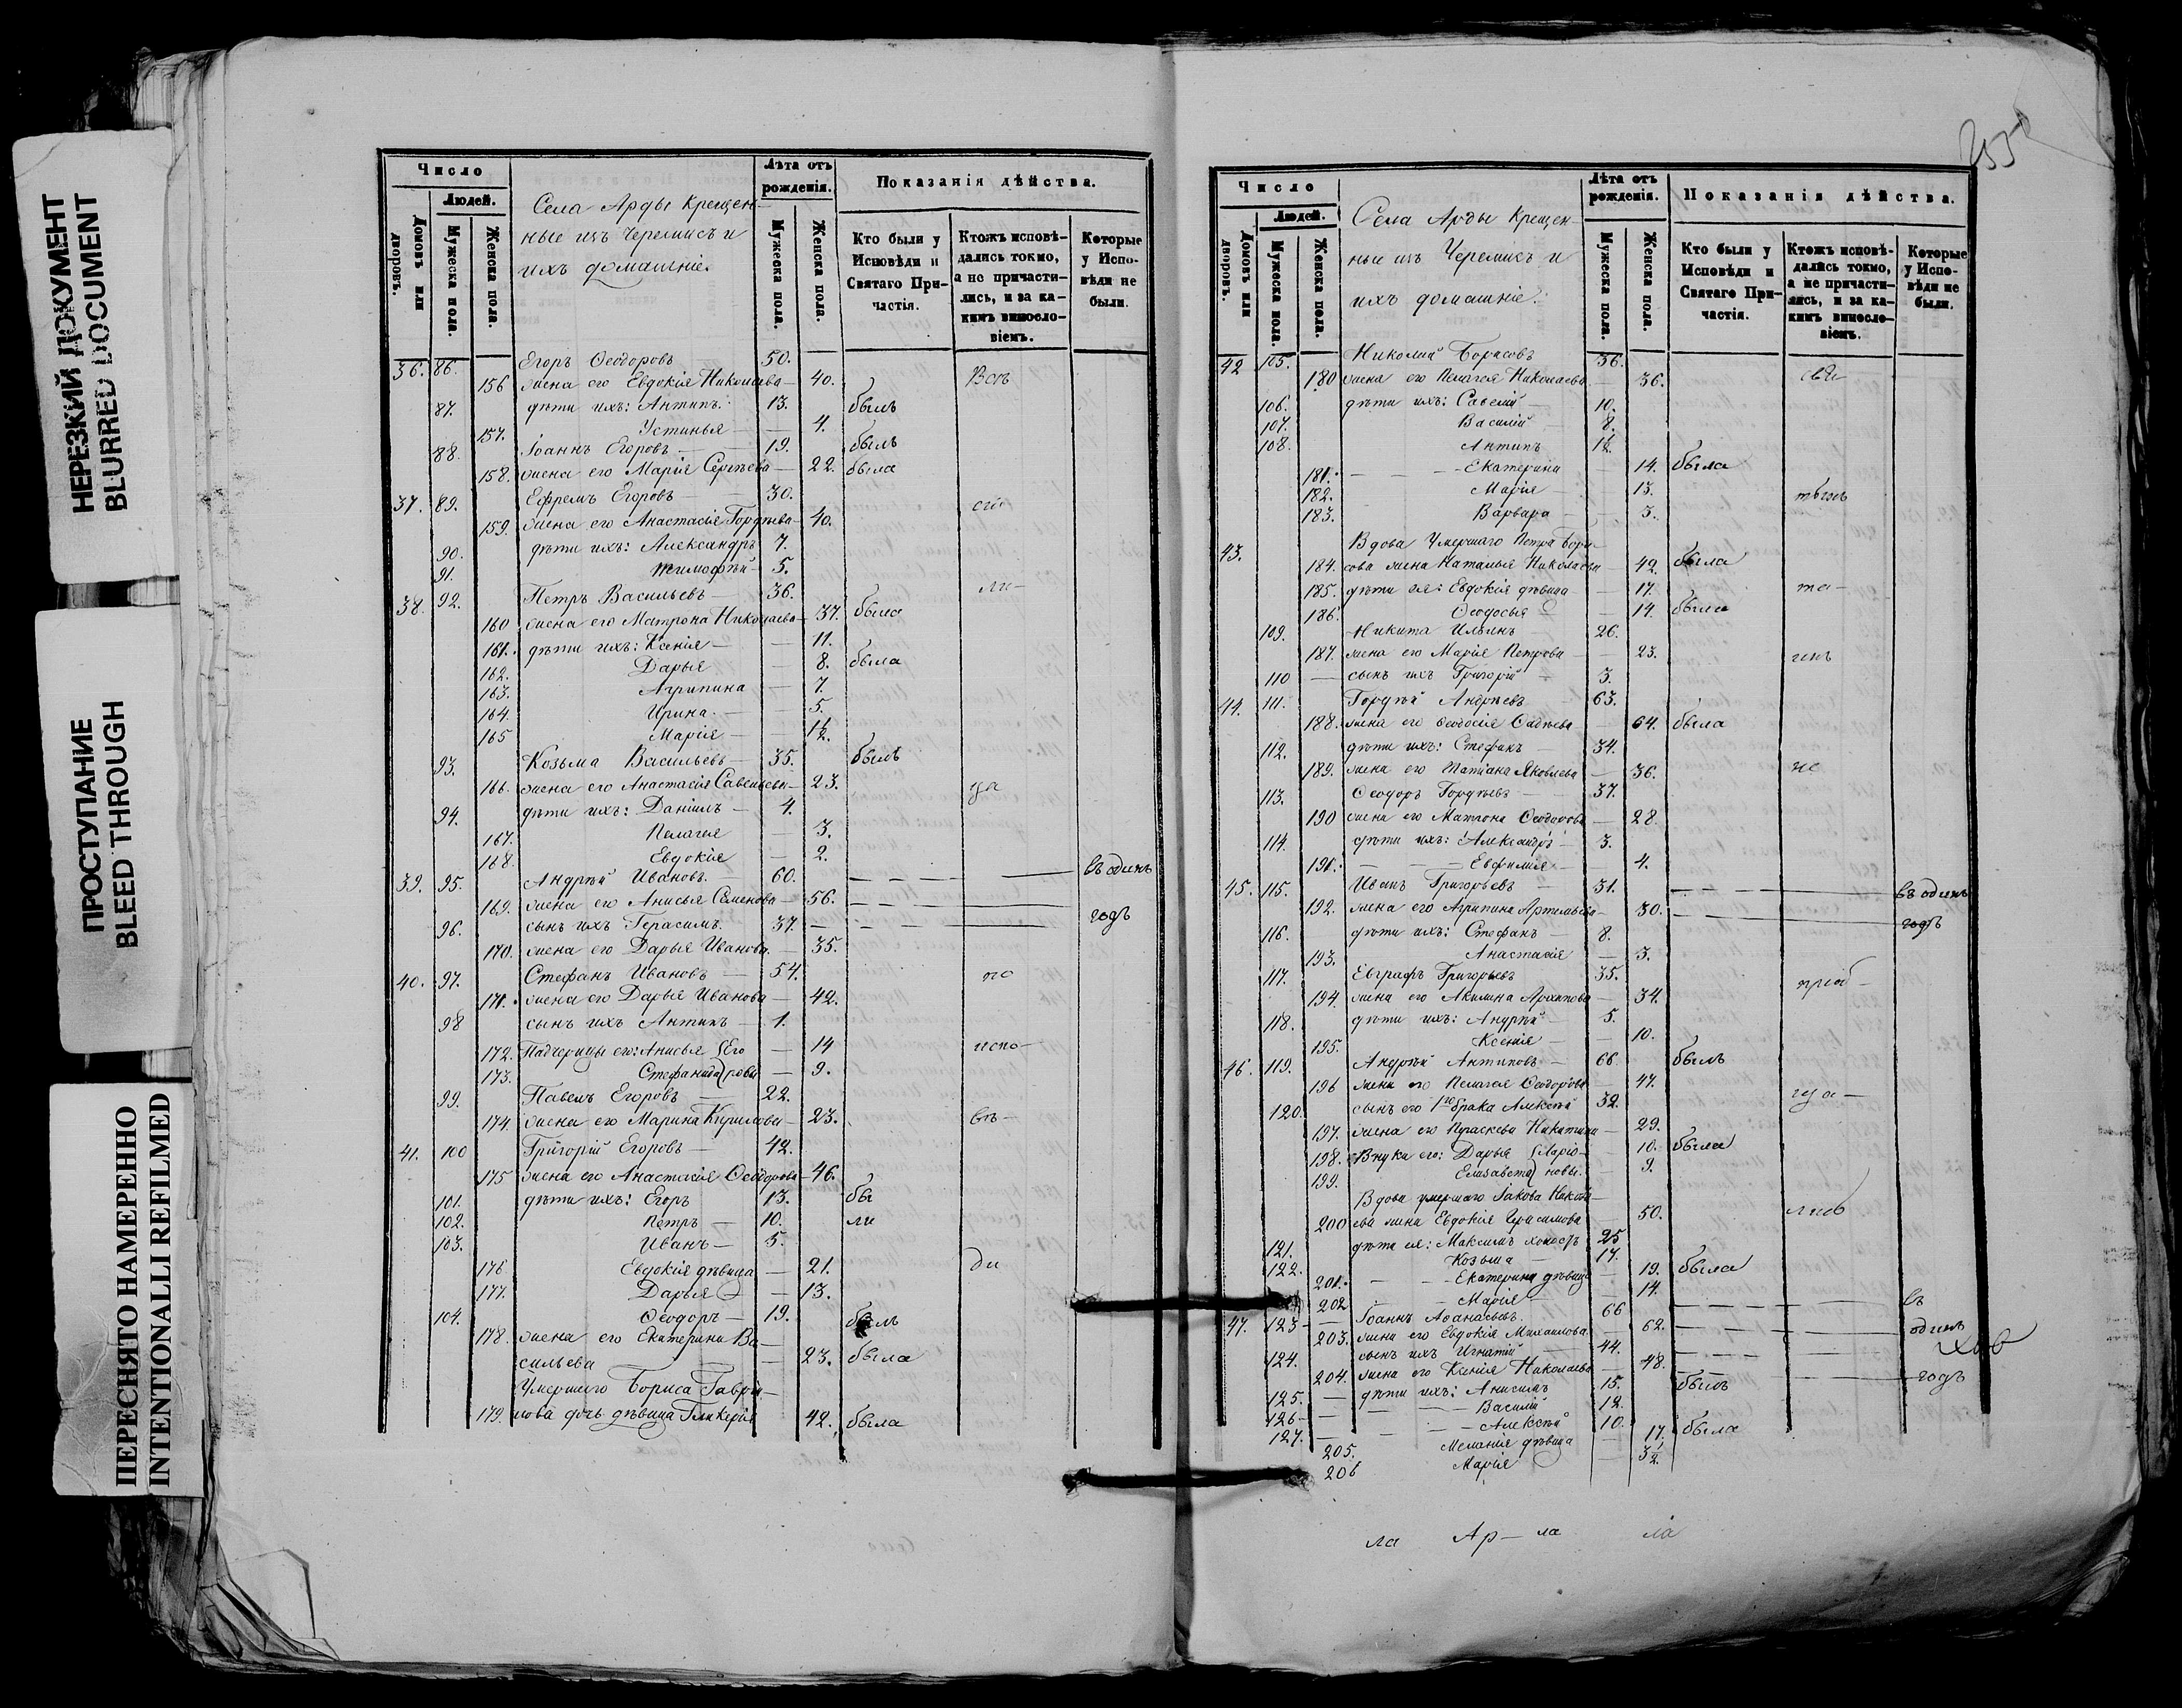 НЕРЕЗКИЙ ДОКУМЕНТ
BLURRED DOCUMENT
ПРОСТУПАНИЕ
BLEED THROUGH
ПЕРЕСНЯТО НАМЕРЕННО
INTENTIONALLI REFILMED
Число
Людей.
Домовъ или дворовъ.
Мужеска пола.
Женска пола.
Села Арды крещен-
ные изъ Черемисъ и
ихъ домашніе.
Лѣта отъ рожденія.
Мужеска пола.
Женска пола.
Показанія дѣйства.
Кто были у Исповѣди и Святаго Причастія.
Ктожъ исповѣдались токмо, а не причастились, и за какимъ винословіемъ.
Которые у Исповѣди не были.
36. 86. Егоръ Ѳеодоровъ — 50.
156 жена его Евдокія Николаева — 40. Всѣ
87. дѣти ихъ: Антипъ. 13. былъ
157. Устинья — 4.
88. Іоаннъ Егоровъ — 19. былъ
158. жена его Марія Сергѣева — 22. была
37. 89. Ефремъ Егоровъ — 30.
159. жена его Анастасія Гордѣева — 40.
90. дѣти ихъ: Александръ 7.
91. Тимофѣй — 5.
38. 92. Петръ Васильевъ — 36. ли—
160 жена его Матрона Николаева — 37. была
161. дѣти ихъ: Ксенія — 11.
162. Дарья — 8. была
163. Агрипина — 7.
164. Ирина. — 5.
165 Марія — 1½.
93. Козьма Васильевъ — 35. былъ
166. жена его Анастасія Савельева — 23.
94. дѣти ихъ: Даніилъ — 4.
167. Пелагея — 3.
168. Евдокія — 2.
39. 95. Андрѣй Ивановъ. — 60. въ одинъ
169. жена его Анисья Семенова — 56.
96. сынъ ихъ Герасимъ. 37. годъ
170. жена его Дарья Иванова. — 35.
40. 97. Стефанъ Ивановъ — 54. по
171. жена его Дарья Иванова — 42.
98 сынъ ихъ Антипъ — 1.
172. Падчерицы его: Анисья Его — 14 испо—
173. Стефанида ровы — 9.
99. Павелъ Егоровъ — 22.
174. жена его Марина Кирилова — 23. вѣ—
41. 100 Григорій Егоровъ — 42.
175 жена его Анастасія Ѳеодорова — 46.
101. дѣти ихъ: Егоръ 13. бы
102. Петръ — 10. ли
103. Иванъ — 5.
176 Евдокія дѣвица — 21. ди
177. Дарья — 13.
104. Ѳеодоръ — 19. былъ
178. жена его Екатерина Ва-
сильева — 23. была
Умершаго Бориса Гаври-
179. лова дочь дѣвица Гликерія 42. была
Число
Людей.
Домовъ или дворовъ.
Мужеска пола.
Женска пола.
Села Арды крещен-
ные изъ Черемисъ и
ихъ домашніе.
Лѣта отъ рожденія.
Мужеска пола.
Женска пола.
Показанія дѣйства.
Кто были у Исповѣди и Святаго Причастія.
Ктожъ исповѣдались токмо, а не причастились, и за какимъ винословіемъ.
Которые у Исповѣди не были.
42 105. Николай Борисовъ 36.
180 жена его Пелагея Николаева 36.
106. дѣти ихъ: Савелій — 10.
107. Василій — 8.
108. Антипъ 1½.
181. — Екатерина 14. была
182. Марія — 13.
183. Варвара — 3.
43. Вдова умершаго Петра Бори-
184. сова жена Наталья Николаева — 42. была
185. дѣти ея: Евдокія дѣвица — 17. та—
186. Ѳеодосья — 14. была
109. Никита Ильинъ 26.
187. жена его Марія Петрова — 23.
110 — сынъ ихъ Григорій — 3.
44. 111. Гордѣй Андрѣевъ — 63.
188. жена его Ѳеодосія Ѳадѣева — 64. была
112. дѣти ихъ: Стефанъ — 34.
189. жена его Татіана Яковлева — 36. не
113. Ѳеодоръ Гордѣевъ — 37.
190 жена его Матрона Ѳеодорова — 28.
114. дѣти ихъ: Александръ — 3.
191. — Евфимія — 4.
45. 115. Иванъ Григорьевъ — 31. въ одинъ
192. жена его Агрипина Артемьева — 30. годъ
116. дѣти ихъ: Стефанъ — 8.
193. Анастасія — 3.
117. Евграфъ Григорьевъ 35. пріоб—
194. жена его Акилина Архипова — 34.
118. дѣти ихъ: Андрѣй — 5.
195. Ксенія — 10.
46. 119. Андрѣй Антиповъ — 66. былъ
196 жена его Пелагея Ѳеодорова — 47.
120. сынъ его 1го брака Алексѣй 32. ща—
197. жена его Параскева Никитина — 29.
198. Внуки его: Дарья Ларіо- 10. была
199. Елизавета новы. 9.
Вдова умершаго Іакова Никола-
200 ева жена Евдокія Герасимова 50. лись
121. дѣти ея: Максимъ холостъ 25
122. Козьма — 17.
201. — Екатерина дѣвица 19. была
202 Марія — 14.
47. 123 — Іоаннъ Аѳанасьевъ. 66 въ
203. жена его Евдокія Михаилова. 62. одинъ
124. сынъ ихъ Игнатій 44.
204. жена его Ксенія Николаева 48. годъ
125. — дѣти ихъ: Анисимъ 15. былъ
126 — Василій 12.
127. — Алексѣй 10.
205. Меланія дѣвица 17. была
206 Марія 3½
ла Ар— ла ла